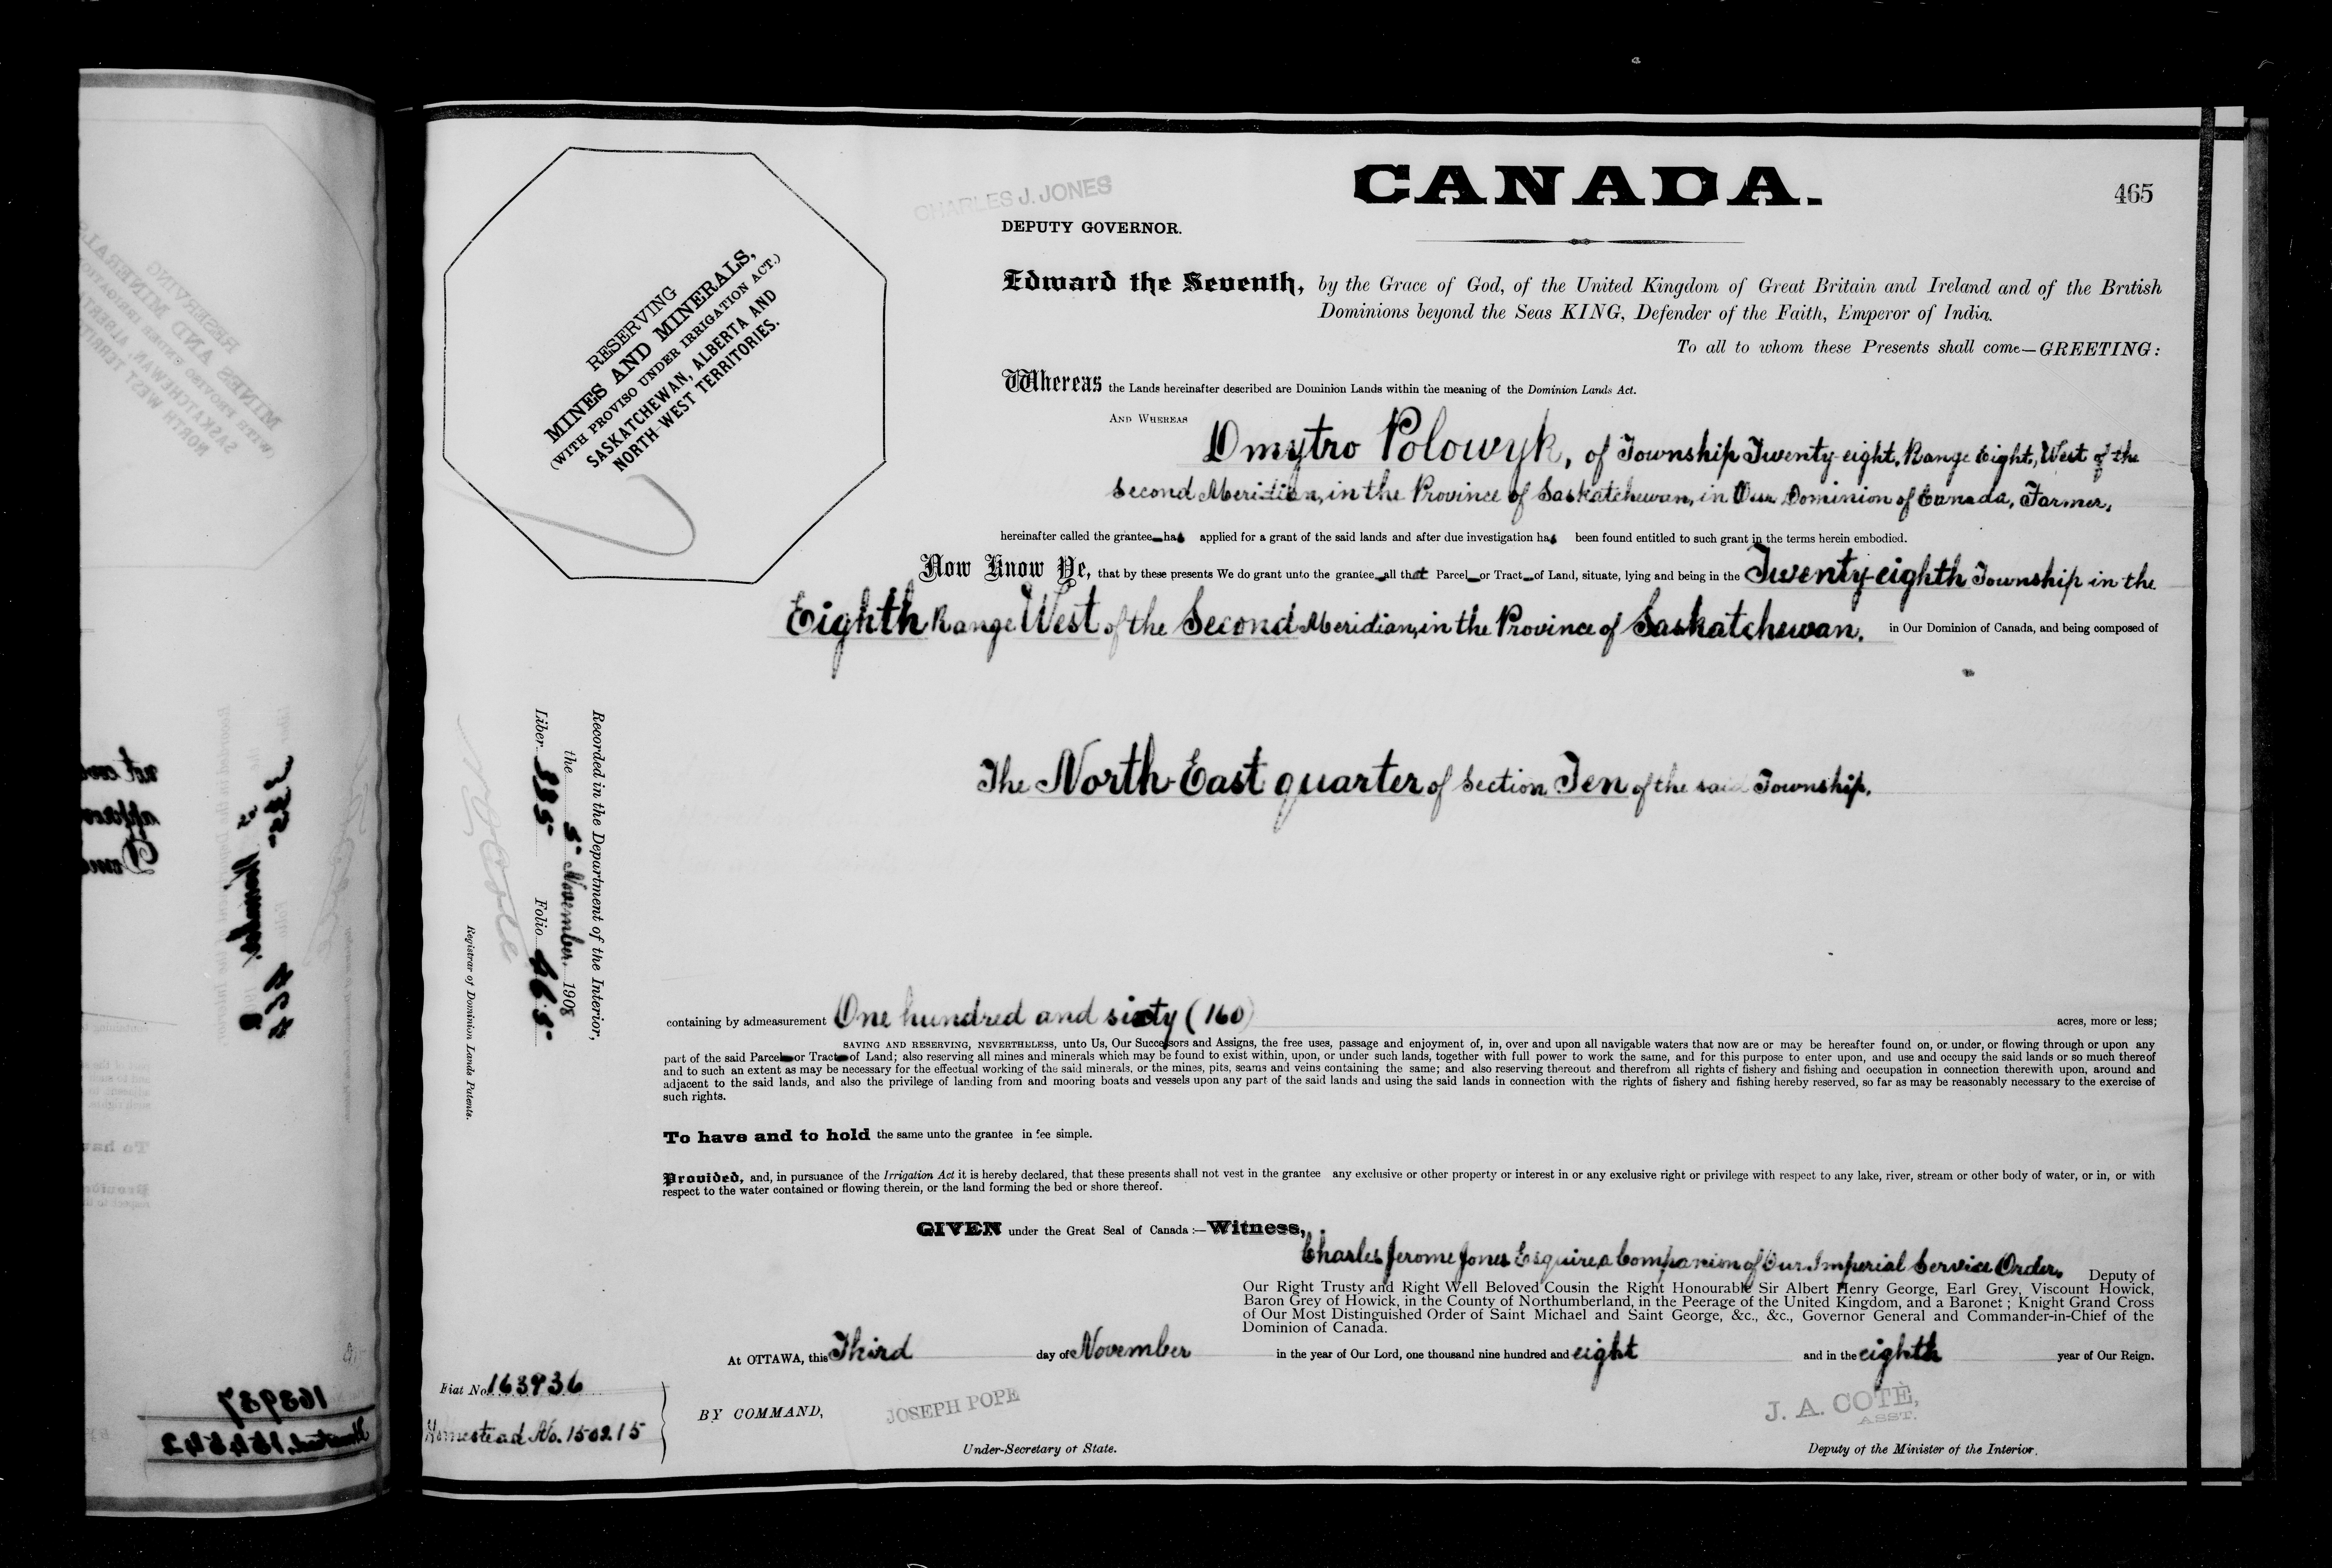 CHARLES J. JONES
DEPUTY GOVERNOR.
CANADA.
465
RESERVING
MINES AND MINERALS,
(WITH PROVISO UNDER IRRIGATION ACT.)
SASKATCHEWAN, ALBERTA AND
NORTH-WEST TERRITORIES.
Edward the Seventh, by the Grace of God, of the United Kingdom of Great Britain and Ireland and of the British
Dominions beyond the Seas KING, Defender of the Faith, Emperor of India.
To all to whom these Presents shall come—GREETING:
Whereas the Lands hereinafter described are Dominion Lands within the meaning of the Dominion Lands Act.
AND WHEREAS
Dmytro Polowyk, of Township Twenty-eight, Range Eight, West of the
Second Meridian, in the Province of Saskatchewan, in Our Dominion of Canada, Farmer,
hereinafter called the grantee has applied for a grant of the said lands and after due investigation has been found entitled to such grant in the terms herein embodied.
Now Know Ye, that by these presents We do grant unto the grantee all that Parcel or Tract of Land, situate, lying and being in the Twenty-eighth Township in the
Eighth Range West of the Second Meridian, in the Province of Saskatchewan, in Our Dominion of Canada, and being composed of
The North-East quarter of Section Ten of the said Township.
Recorded in the Department of the Interior,
the 5 November. 1908
Liber 335 Folio 465
Registrar of Dominion Lands Patents.
containing by admeasurement One hundred and sixty (160) acres, more or less;
SAVING AND RESERVING, NEVERTHELESS, unto Us, Our Successors and Assigns, the free uses, passage and enjoyment of, in, over and upon all navigable waters that now are or may be hereafter found on, or under, or flowing through or upon any
part of the said Parcel or Tract of Land; also reserving all mines and minerals which may be found to exist within, upon, or under such lands, together with full power to work the same, and for this purpose to enter upon, and use and occupy the said lands or so much thereof
and to such an extent as may be necessary for the effectual working of the said minerals, or the mines, pits, seams and veins containing the same; and also reserving thereout and therefrom all rights of fishery and fishing and occupation in connection therewith upon, around and
adjacent to the said lands, and also the privilege of landing from and mooring boats and vessels upon any part of the said lands and using the said lands in connection with the rights of fishery and fishing hereby reserved, so far as may be reasonably necessary to the exercise of
such rights.
To have and to hold the same unto the grantee in fee simple.
Provided, and, in pursuance of the Irrigation Act it is hereby declared, that these presents shall not vest in the grantee any exclusive or other property or interest in or any exclusive right or privilege with respect to any lake, river, stream or other body of water, or in, or with
respect to the water contained or flowing therein, or the land forming the bed or shore thereof.
GIVEN under the Great Seal of Canada:—Witness,
Charles Jerome Jones Esquire, a Companion of Our Imperial Service Order, Deputy of
Our Right Trusty and Right Well Beloved Cousin the Right Honourable Sir Albert Henry George, Earl Grey, Viscount Howick,
Baron Grey of Howick, in the County of Northumberland, in the Peerage of the United Kingdom, and a Baronet; Knight Grand Cross
of Our Most Distinguished Order of Saint Michael and Saint George, &c., &c., Governor General and Commander-in-Chief of the
Dominion of Canada.
At OTTAWA, this Third day of November in the year of Our Lord, one thousand nine hundred and eight and in the eighth year of Our Reign.
Fiat No. 163936
Homestead No. 150215
BY COMMAND,
JOSEPH POPE
Under-Secretary of State.
J. A. COTÉ,
ASST.
Deputy of the Minister of the Interior.